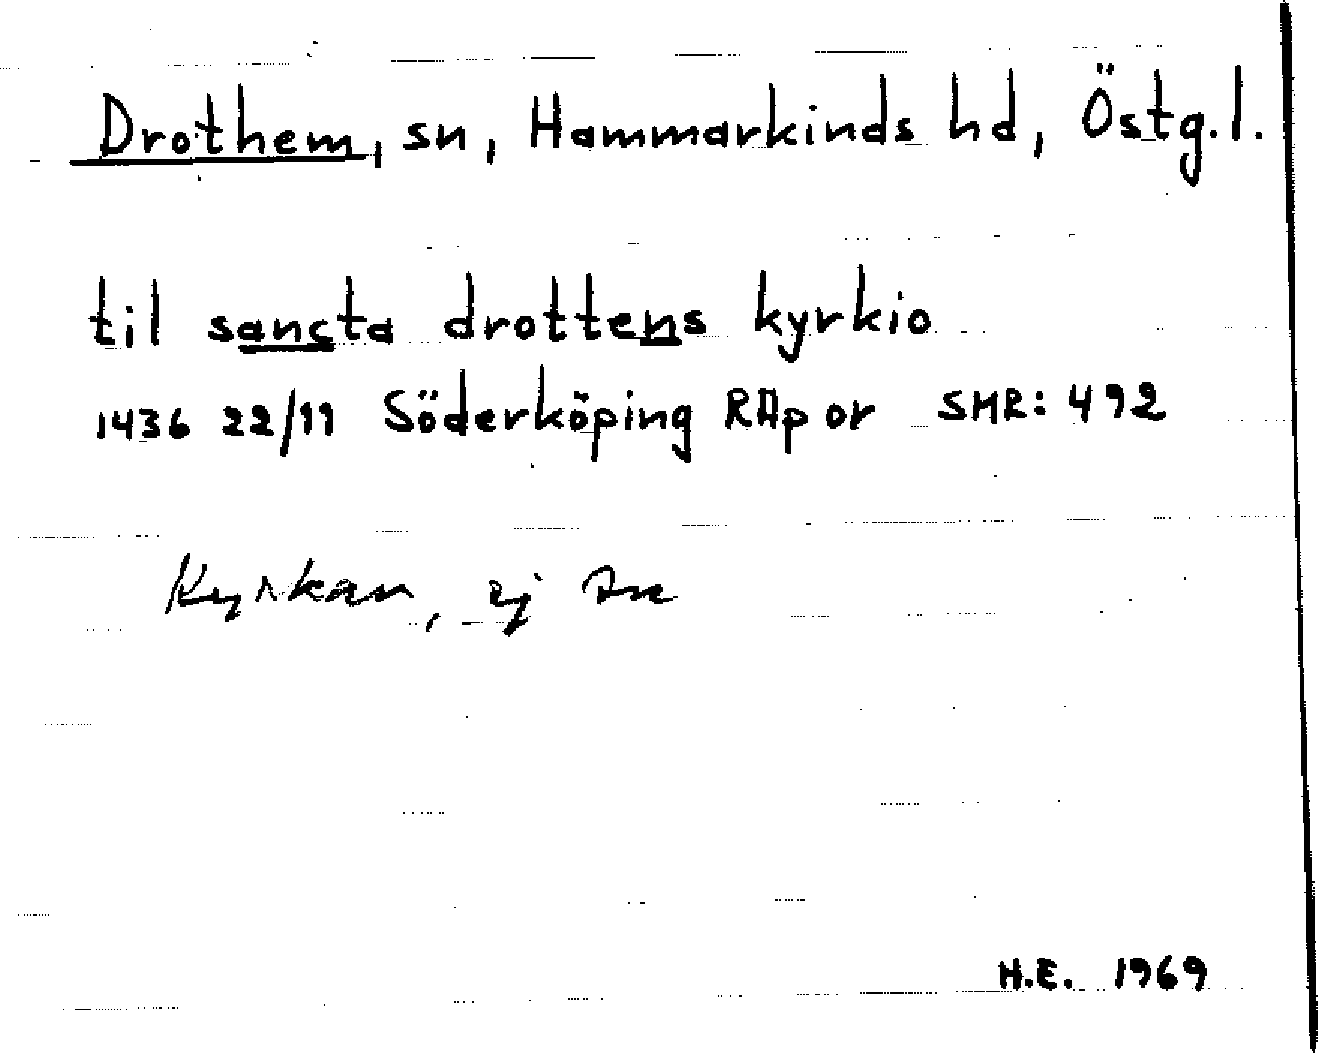 Drothem, sn, Hammarkinds hd, Östg.l.
til sancta drottens kyrkio
1436 22/11 Söderköping RAp or SMR: 492
Kyrkan, ej sn
H.E. 1969